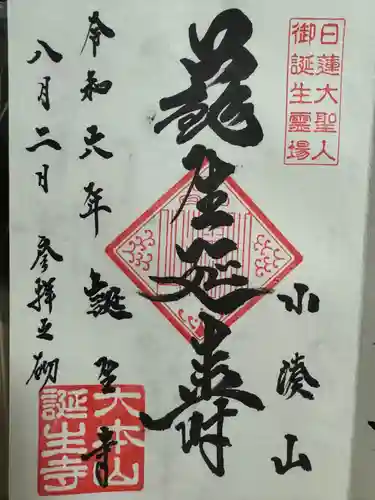 日蓮大聖人
御誕生霊場
小湊山
蘇生延寿
誕生寺
令和六年
八月二日 参拝之砌
大本山
誕生寺